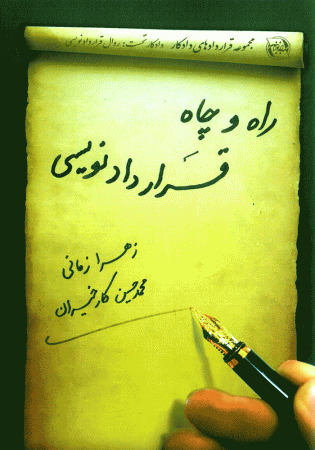 مجموعه قراردادهای دادکار دادکار تحت: روال قراردادنویسی
راه و چاه
قرارداد نویسی
زهرا زمانی
محمدحسین کارخیران